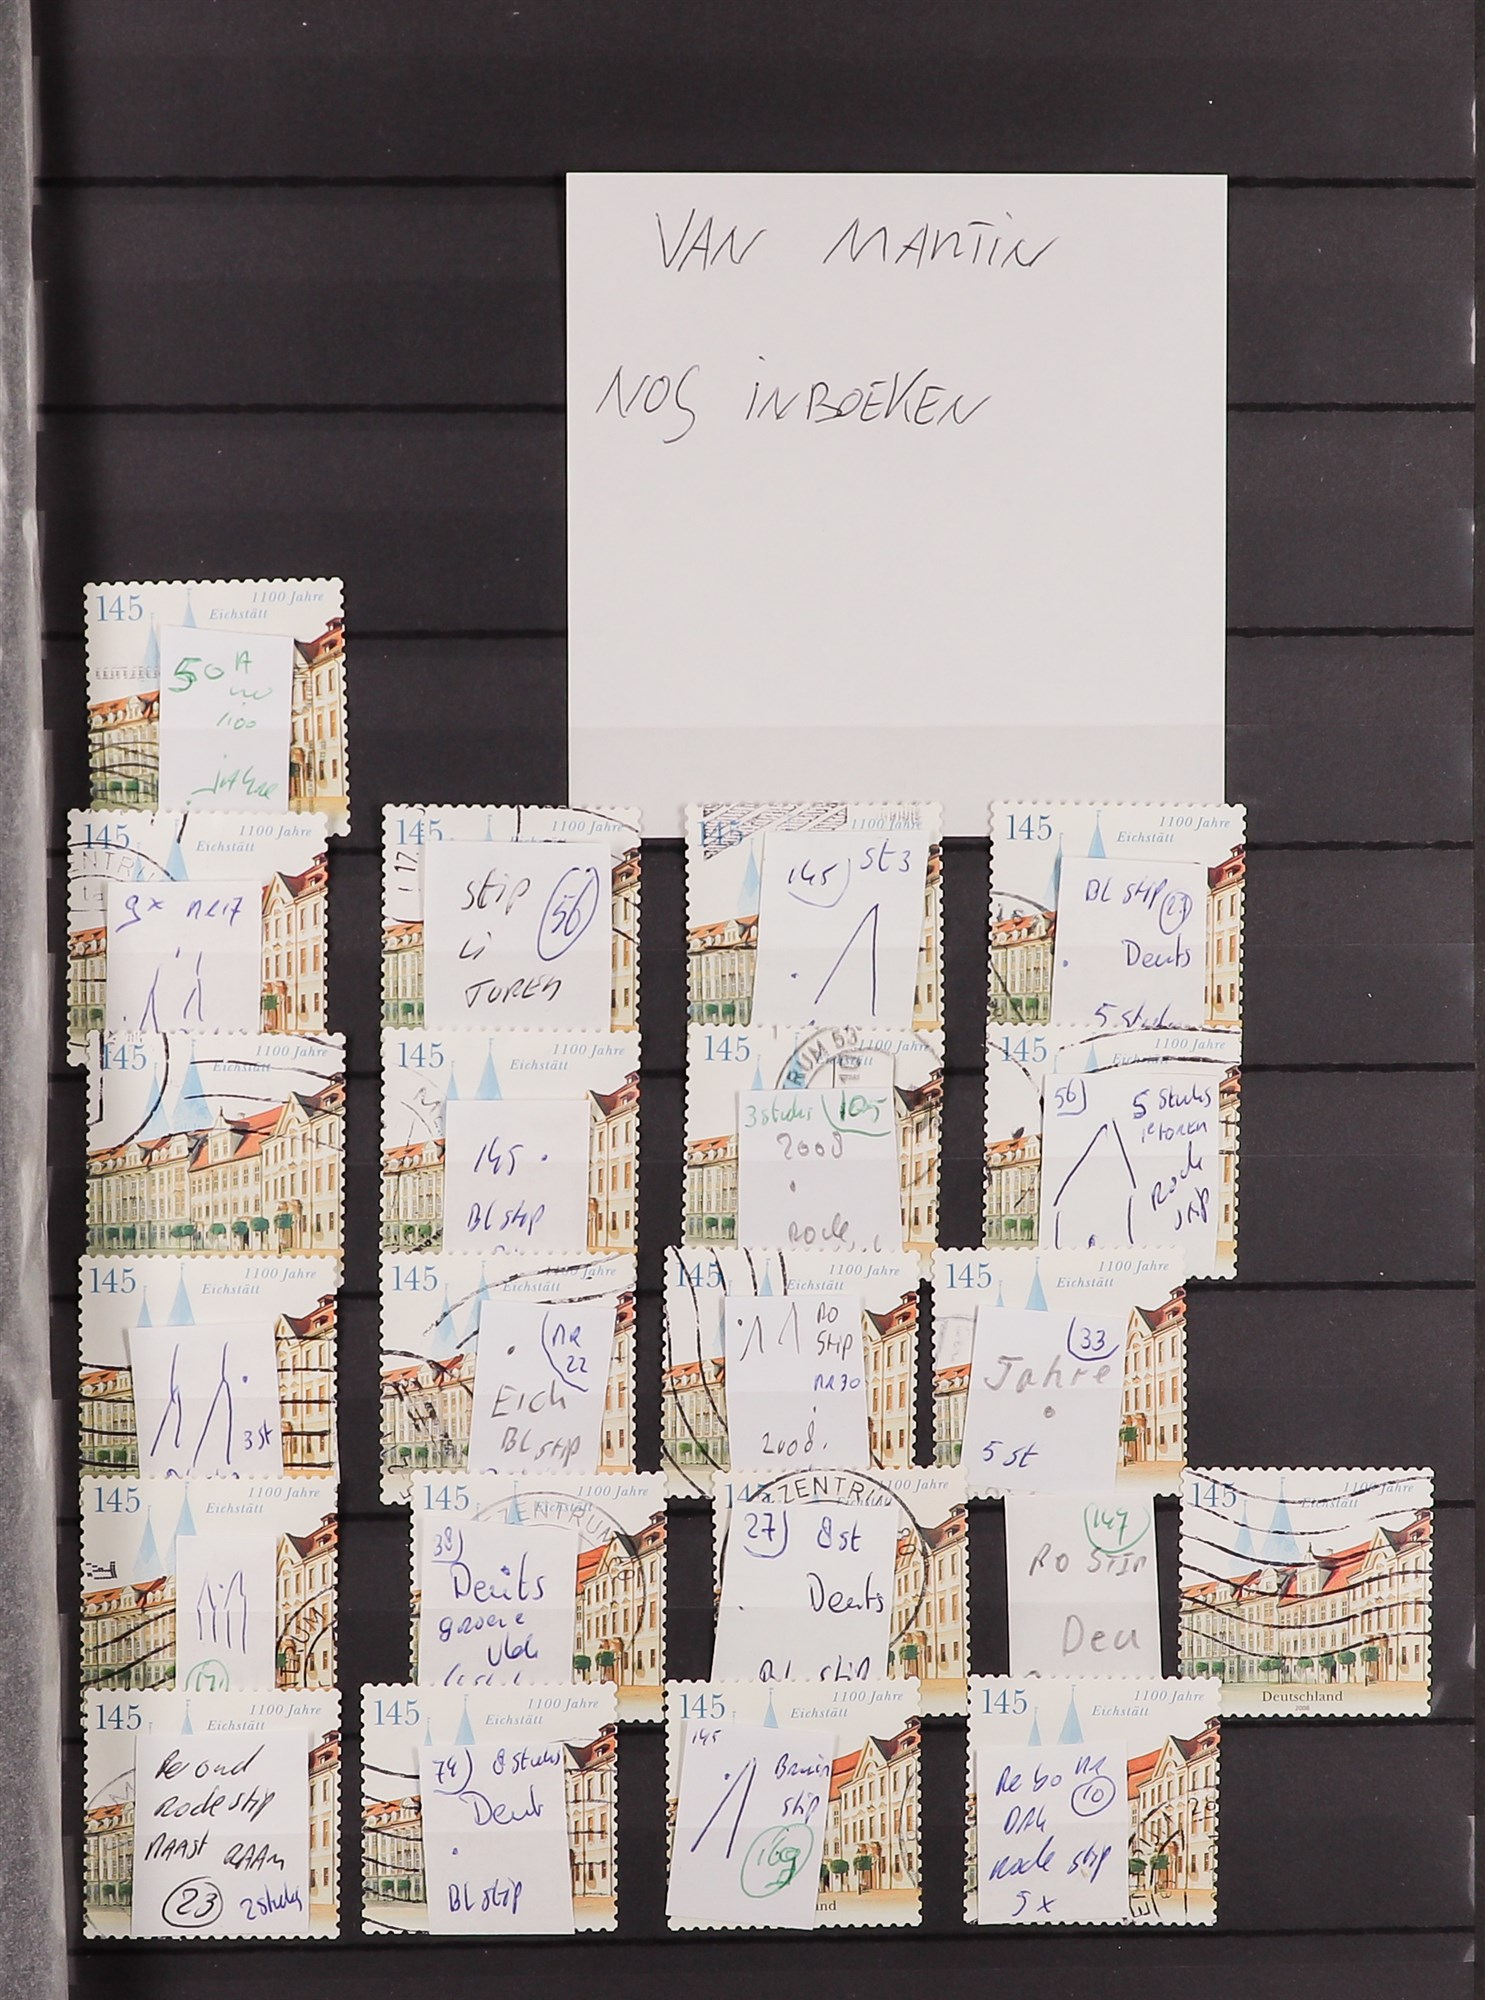 VAN MARTIN
NOG INBOEKEN
145
1100 Jahre
Eichstätt
50
1100
145
1100 Jahre
Eichstätt
9x
145
1100 Jahre
stip
56
TOREN
145
1100 Jahre
145
St 3
145
1100 Jahre
Eichstätt
BL stip
27
Deuts
5
145
1100 Jahre
Eichstätt
145
1100 Jahre
Eichstätt
145
BL stip
145
1100 Jahre
Eichstätt
RUM 53
3 stuks
105
2008
Rode
145
1100 Jahre
Eichstätt
56
5 stuks
TOREN
Rode
stip
145
1100 Jahre
Eichstätt
3 st
145
1100 Jahre
Eichstätt
NR
22
Eich
BL stip
145
1100 Jahre
Eichstätt
RO
stip
NR 30
2008.
145
1100 Jahre
Eichstätt
33
Jahre
5 st
145
1100 Jahre
Eichstätt
RUM
145
1100 Jahre
Eichstätt
ZENTRUM
38
Deuts
groene
145
1100 Jahre
Eichstätt
ZENTRU
27
8 st
Deuts
147
RO STIP
Deu
145
1100 Jahre
Eichstätt
Deutschland
2008
145
1100 Jahre
Eichstätt
Rode stip
NAAST RAAM
23
2 stuks
145
1100 Jahre
Eichstätt
74
8 stuks
Deut
BL stip
145
1100 Jahre
Eichstätt
145
Bruin
stip
169
and
145
1100 Jahre
Eichstätt
NR
10
DAK
Rode stip
5 x